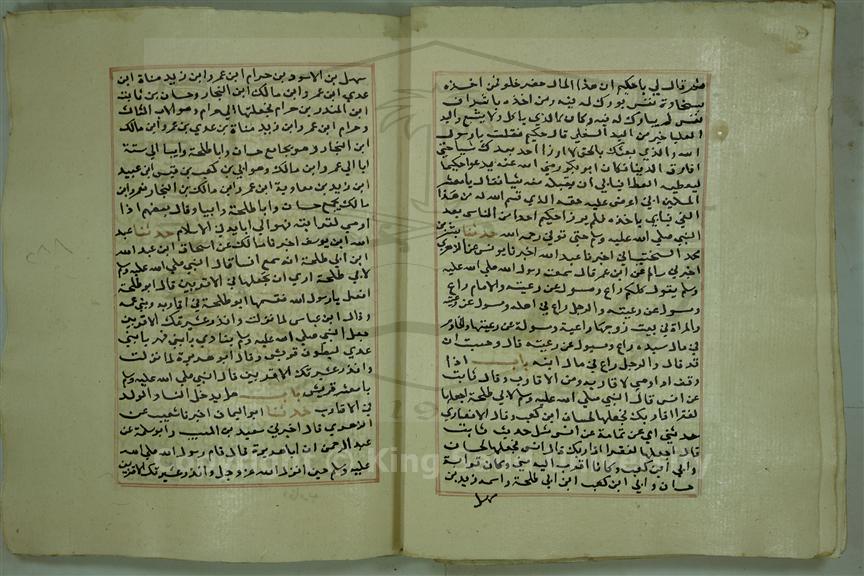 ثم قال لي يا حكيم ان هذا المال خضر حلو فمن اخذه
بسخاوة نفس بورك له فيه ومن اخذه باشراف
نفس لم يبارك له فيه وكان كالذي ياكل ولا يشبع واليد
العليا خير من اليد السفلي قال حكيم فقلت يا رسول
الله والذي بعثك بالحق لا ارزا احد بعدك شيا حتي
افارق الدنيا فكان ابو بكر رضي الله عنه يدعو حكيما
ليعطيه العطا فيابي ان يقبل منه شيا فقال يا معشر
المسلمين اني اعرض عليه حقه الذي قسم الله له من هذا
الفي فيابي ياخذه فلم يرزا حكيم احدا من الناس بعد
النبي صلي الله عليه وسلم حتي توفي رحمه الله حدثنا بشر بن
محمد السختياني اخبرنا عبد الله اخبرنا يونس عن الزهري
اخبرني سالم عن ابن عمر قال سمعت رسول الله صلي الله عليه
وسلم يقول كلكم راع ومسول عن رعيته والامام راع
ومسول عن رعيته والرجل راع في اهله ومسول عن رعيته
والمراة في بيت زوجها راعية ومسولة عن رعيتها والخادم
في مال سيده راع ومسول عن رعيته قال وحسبت ان
قد قال والرجل راع في مال ابيه باب اذا
وقف او اوصي لاقاربه ومن الاقارب وقال ثابت
عن انس قال النبي صلي الله عليه وسلم لابي طلحة اجعلها
لفقرا اقاربك فجعلها لحسان وابي ابن كعب وقال الانصاري
حدثني ابي عن ثمامة عن انس مثل حديث ثابت
قال اجعلها لفقرا قرابتك قال انس فجعلها لحسان
وابي ابن كعب وكانا اقرب اليه مني وكان قرابة
حسان وابي ابن كعب من ابي طلحة واسمه زيد بن
سهل
سهل بن الاسود بن حرام ابن عمرو ابن زيد مناة ابن
عدي ابن عمرو ابن مالك ابن النجار وحسان بن ثابت
ابن المنذر بن حرام فيجتمعان الي حرام وهو الاب الثالث
وحرام ابن عمرو ابن زيد مناة بن عدي بن عمرو ابن مالك
ابن النجار وهو يجامع حسان وابا طلحة وابيا الي ستة
ابا الي عمرو ابن مالك وهو ابي بن كعب بن قيس ابن عبيد
ابن زيد بن معاوية ابن عمرو ابن مالك بن النجار فعمرو ابن
مالك يجمع حسان وابا طلحة وابيا وقال بعضهم اذا
اوصي لقرابته فهو الي ابايه في الاسلام حدثنا عبد
الله ابن يوسف اخبرنا مالك عن اسحاق ابن عبد الله
ابن ابي طلحة انه سمع انسا قال النبي صلي الله عليه وسلم
لابي طلحة اري ان تجعلها في الاقربين قال ابو طلحة
افعل يا رسول الله فقسمها ابو طلحة في اقاربه وبني عمه
وقال ابن عباس لما نزلت وانذر عشيرتك الاقربين
جعل النبي صلي الله عليه وسلم ينادي يا بني فهر يا بني
عدي لبطون قريش وقال ابو هريرة لما نزلت
وانذر عشيرتك الاقربين قال النبي صلي الله عليه وسلم
يا معشر قريش باب هل يدخل النسا والولد
في الاقارب حدثنا ابو اليمان اخبرنا شعيب عن
الزهري قال اخبرني سعيد بن المسيب وابو سلمة بن
عبد الرحمن ان ابا هريرة قال قام رسول الله صلي الله
عليه وسلم حين انزل الله عز وجل وانذر عشيرتك الاقربين